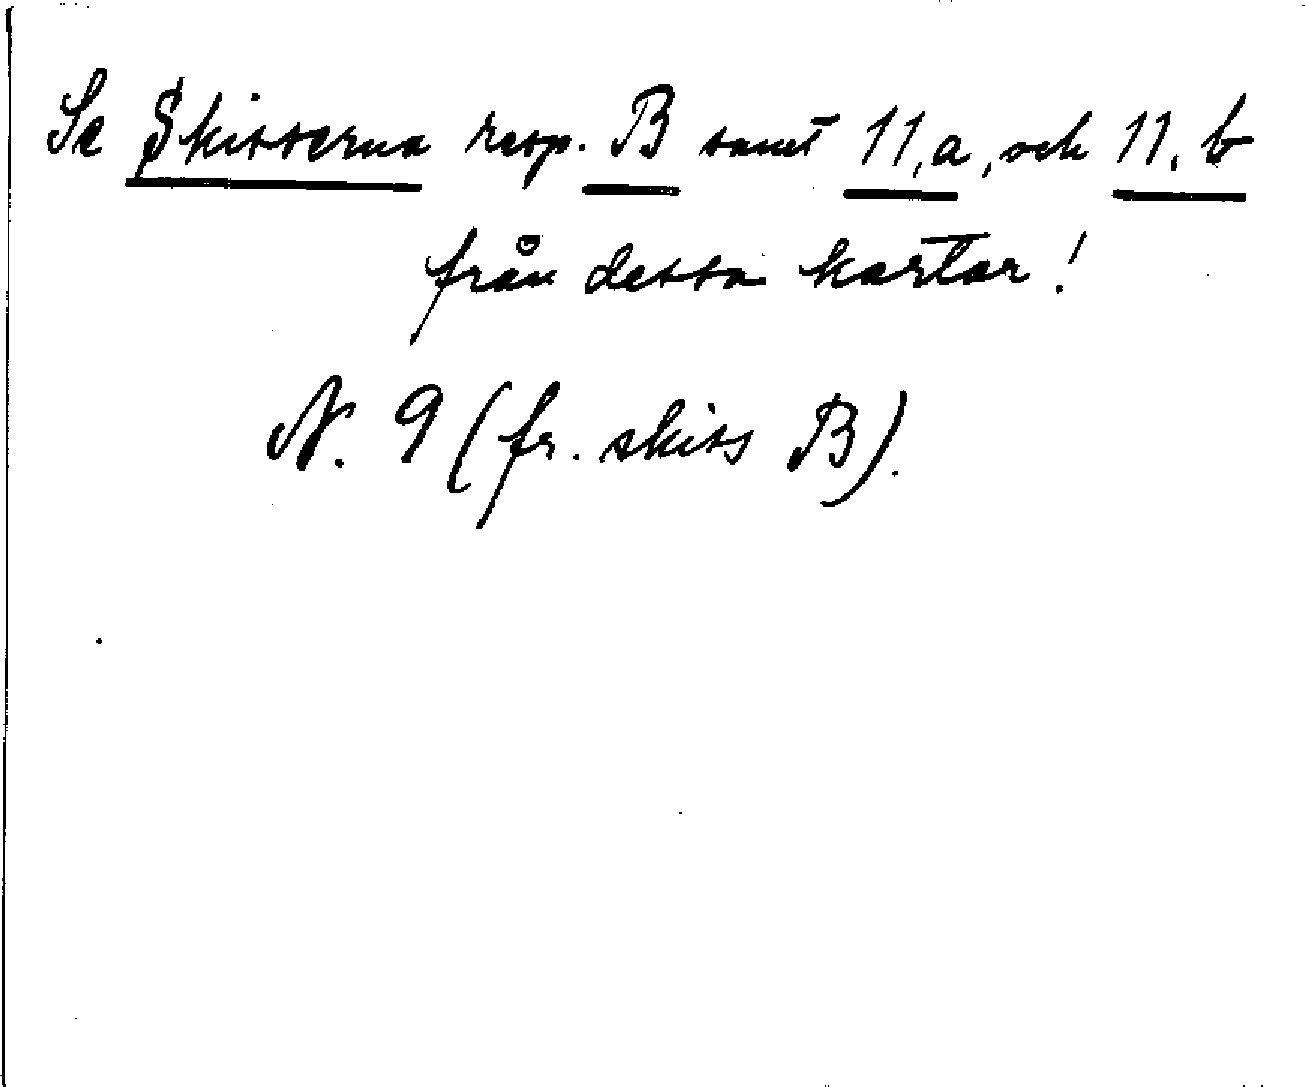 Se Skisserna resp. B samt 11,a, och 11. b
från dessa kartor!
N. 9 (fr. skiss B).